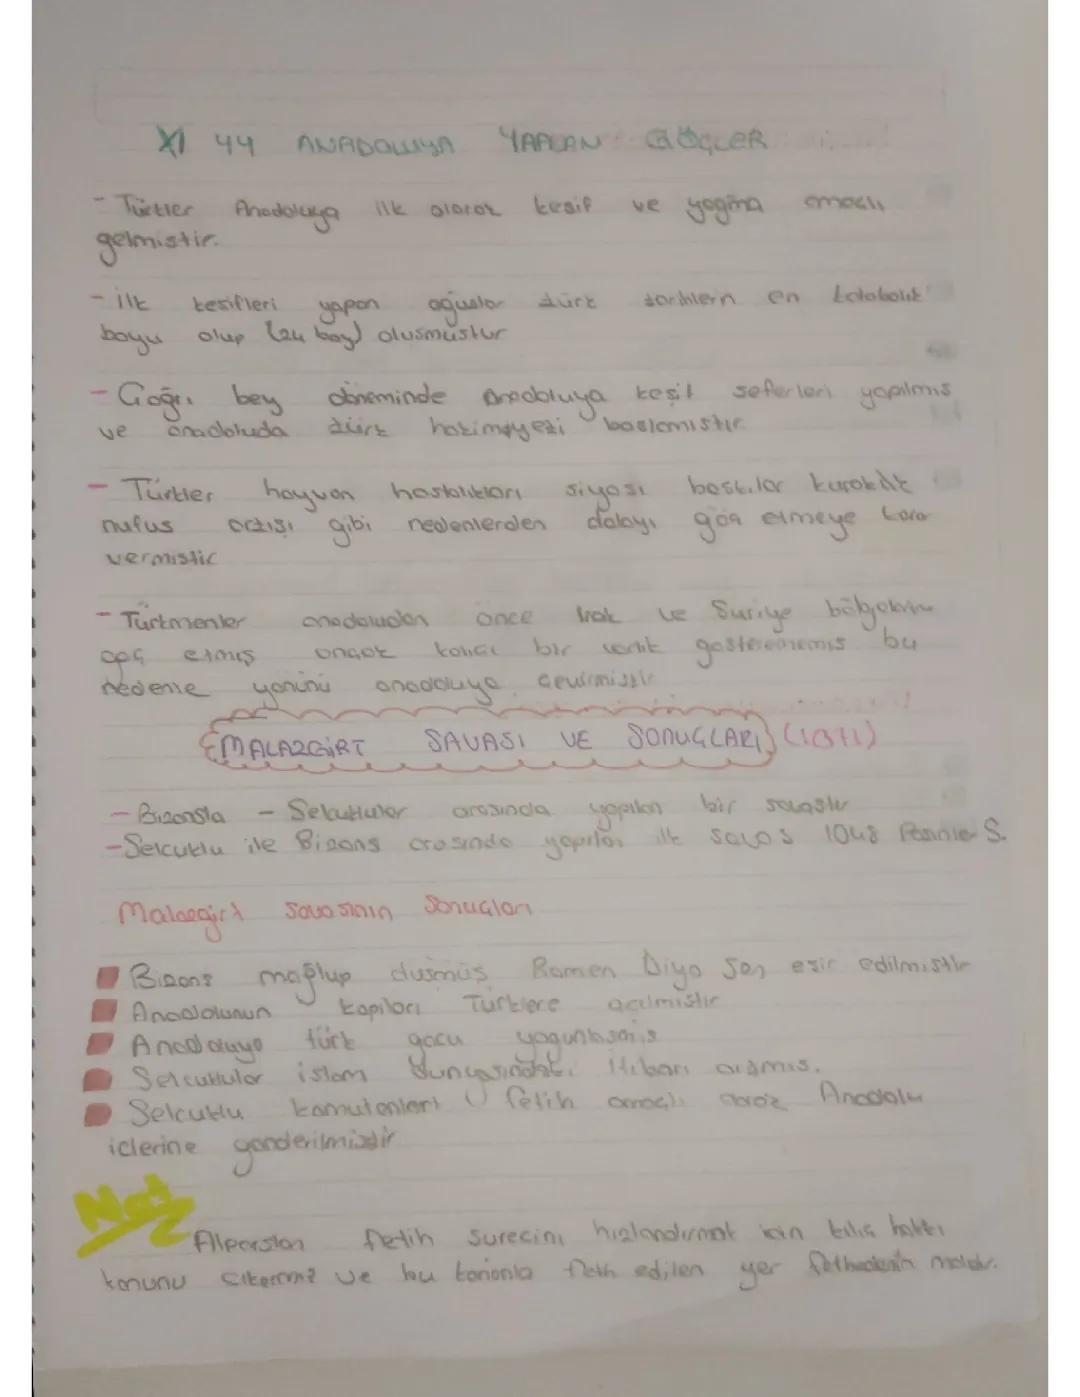 XI 44 ANADOLUYA YAPILAN GÖÇLER
- Türkler Anadoluya ilk olarak kesif ve yagma amaclı
gelmistir.
- ilk kesifleri yapan oğuzlar türk tarihlerin en kalabalık
boyu olup (24 boy) olusmustur
- Çağrı bey döneminde Anadoluya kesif seferleri yapılmıs
ve anadoluda türk hakimeyeti baslamıstır.
- Türkler hayvan hastalıkları siyası baskılar kuraklık
nufus artısı gibi nedenlerden dolayı göç etmeye karar
vermistir
- Türkmenler anadoludan önce Irak ve Suriye bölgelerine
göç etmış ancak kalıcı bir varlık gosterememıs bu
nedenle yonünü anadoluya cevirmistir
MALAZGİRT SAVASI VE SONUÇLARI (1071)
- Bizansla - Selcuklular arasında yapılan bir savastır
- Selcuklu ile Bizans arasında yapılan ilk savas 1048 Pasinler S.
Malazgirt savasının Sonuçları
Bizans mağlup dusmüs Romen Diyo Jen esir edilmistir
Anadolunun kapıları Türklere acılmistir
Anadoluya türk gocu yogunlasmıs
Selcuklular islam dunyasındaki itibarı artmıs.
Selcuklu komutanları fetih amaclı Anadolu
iclerine gonderilmistir
Not
Alparslan fetih surecini hızlandırmak icin kılıc hakkı
kanunu cıkarmıs ve bu kanunla feth edilen yer fethedenin malıdır.